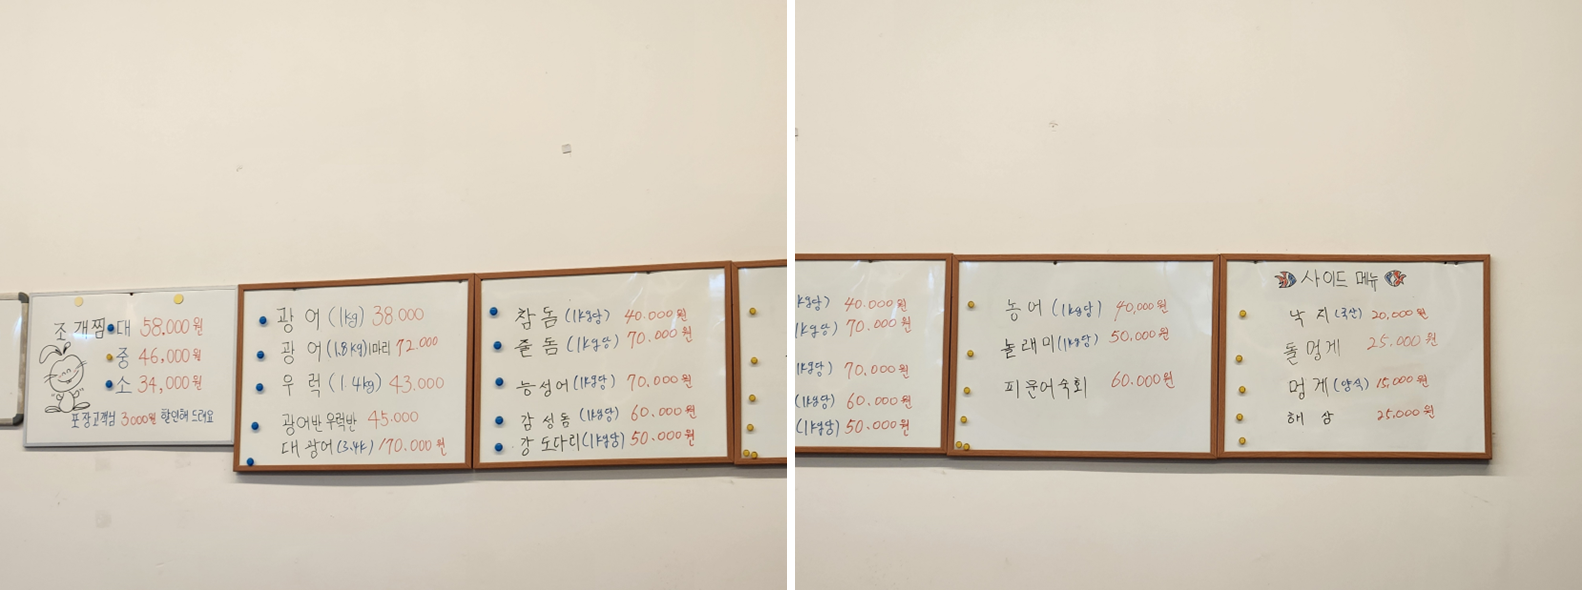 조개찜 대 58.000원
중 46,000원
소 34,000원
포장고객님 3000원 할인해 드려요
광어 (1kg) 38 000
광어 (1.8kg) 1마리 72.000
우럭 (1.4kg) 43.000
광어반 우럭반 45.000
대광어 (3.4k) 170.000원
참돔 (1kg당) 40.000원
줄돔 (1kg당) 70.000원
능성어 (1kg당) 70.000원
감성돔 (1kg당) 60.000원
강도다리 (1kg당) 50.000원
kg당) 40.000원
(1kg당) 70.000원
kg당) 70.000원
(1kg당) 60.000원
(1kg당) 50.000원
농어 (1kg당) 40,000원
놀래미 (1kg당) 50,000원
피문어숙회 60.000원
사이드 메뉴
낙지 (국산) 20,000원
돌멍게 25.000원
멍게 (양식) 15,000원
해삼 25.000원